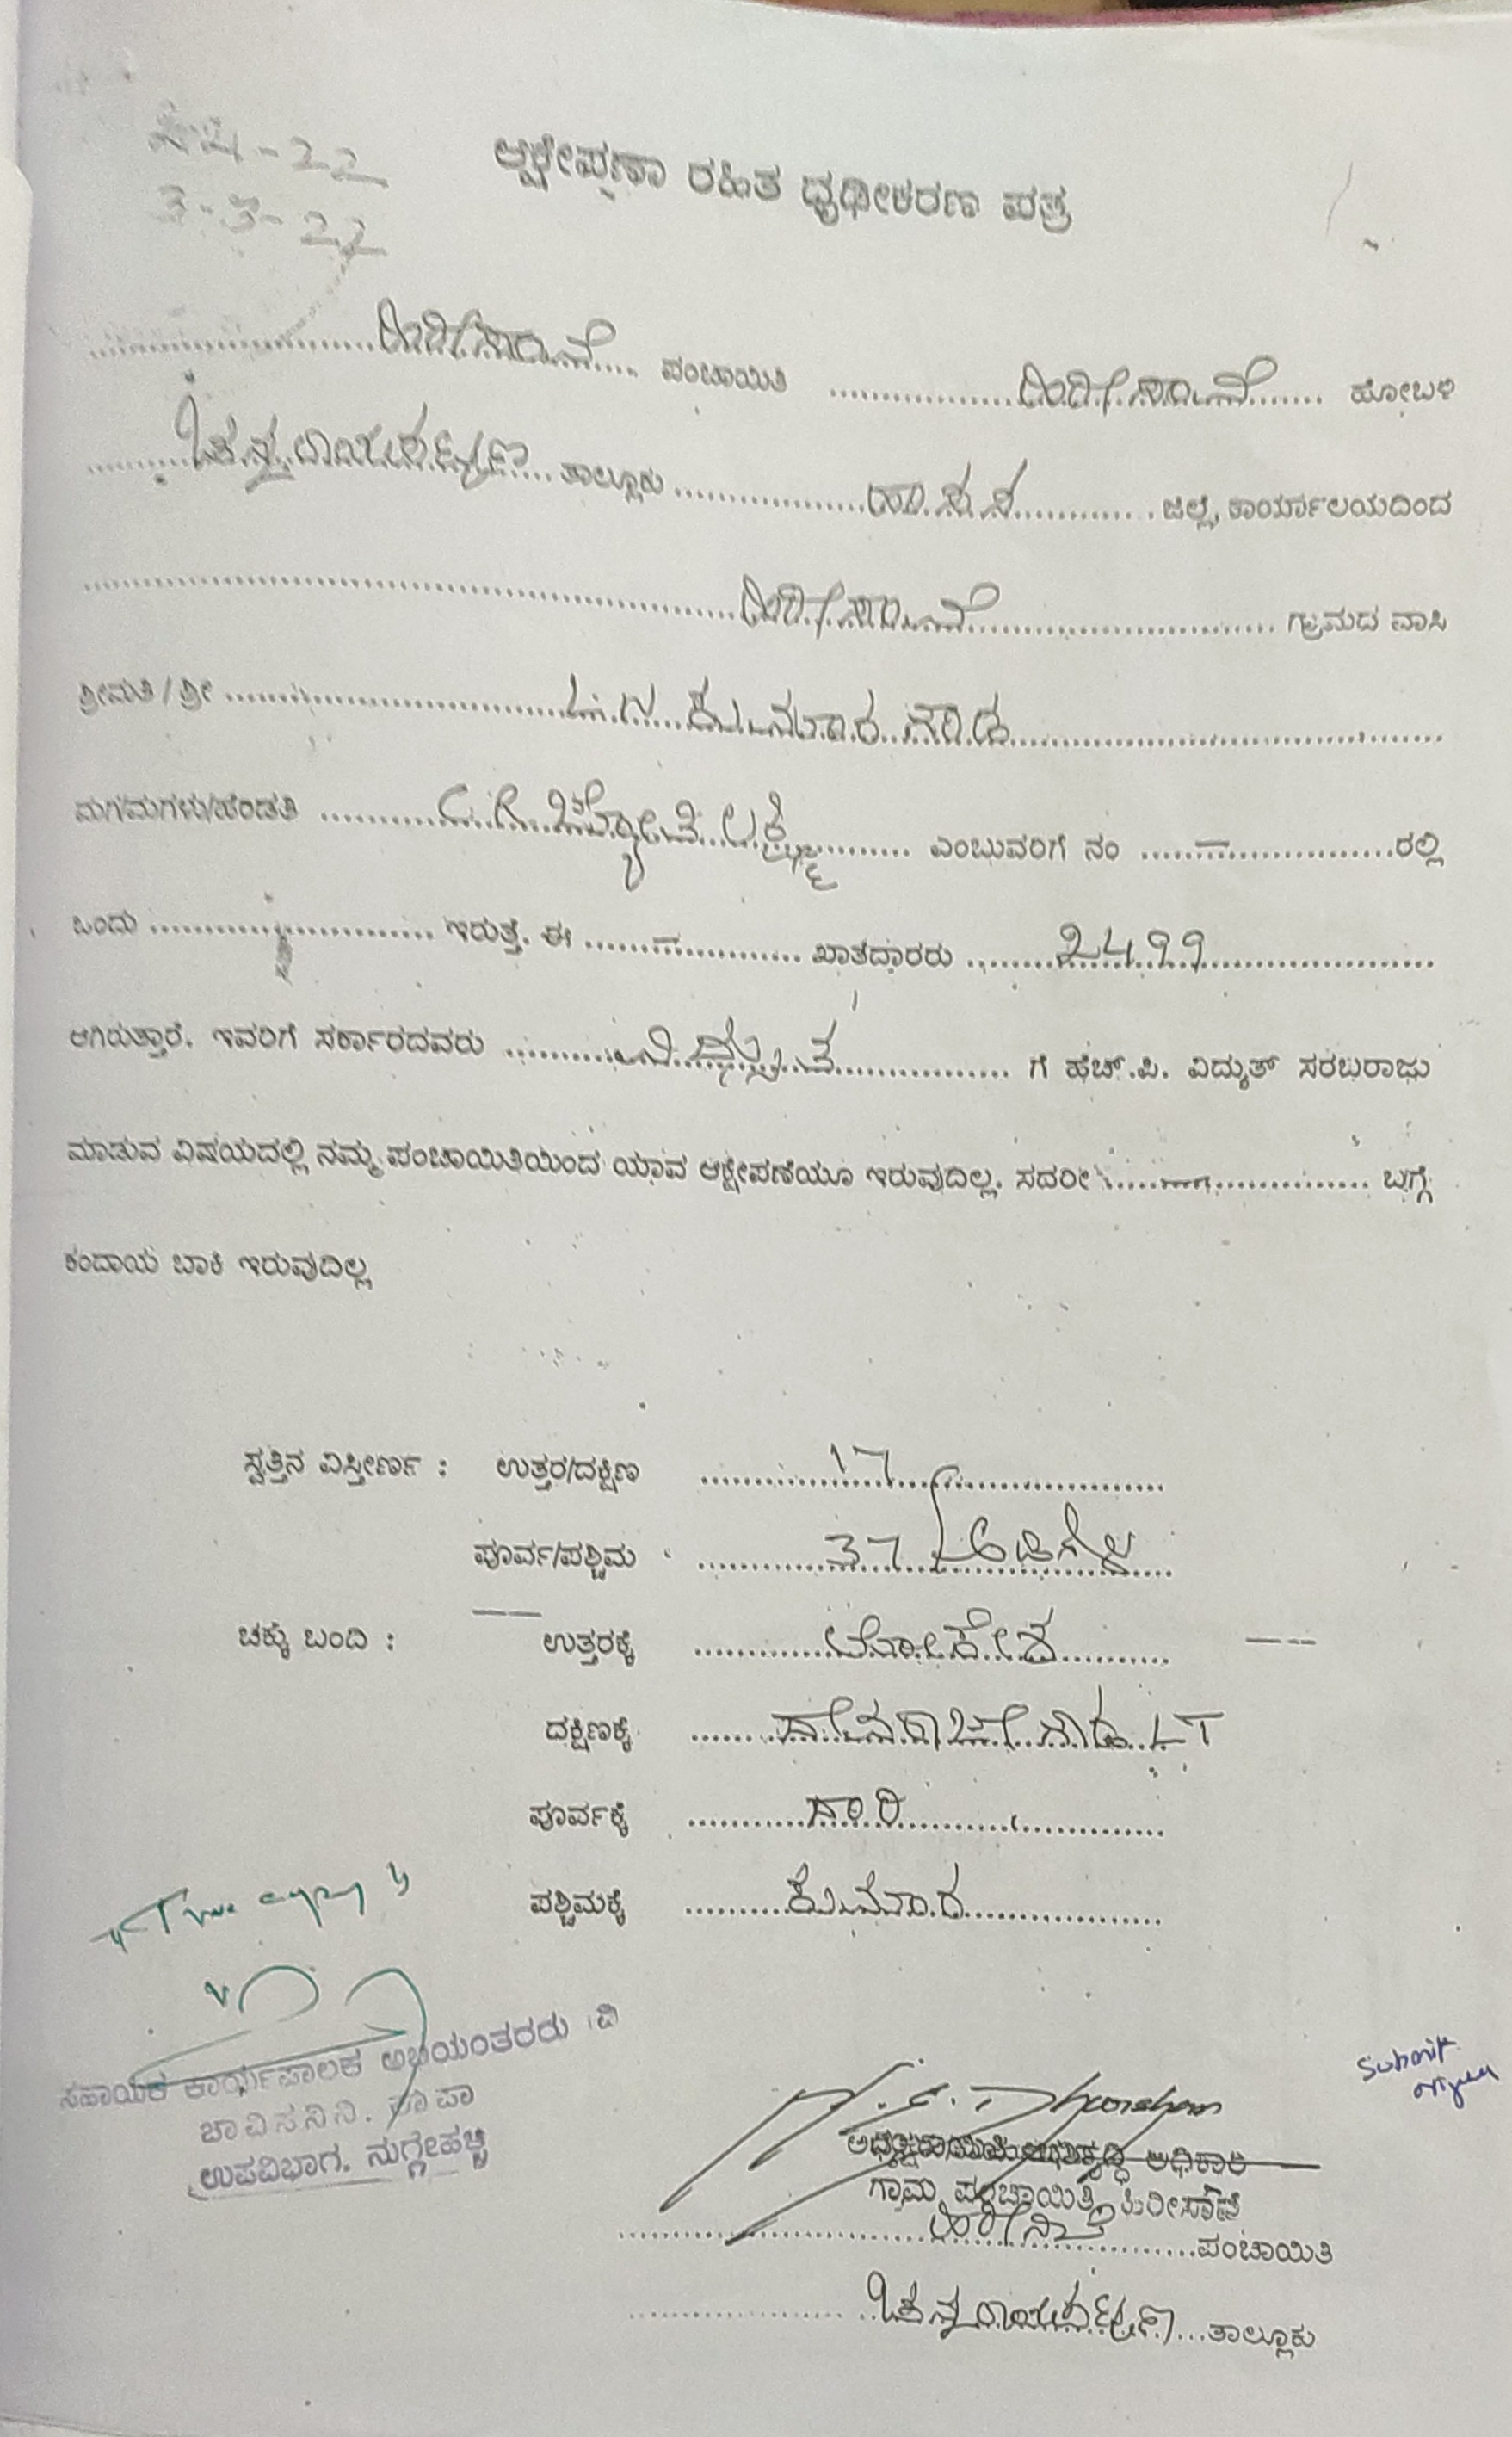 24-22
3-3-22
ಆಕ್ಷೇಪಣಾ ರಹಿತ ಧೃಢೀಕರಣ ಪತ್ರ
ಹಿರೀಸಾವೆ ಪಂಚಾಯಿತಿ ಹಿರೀಸಾವೆ ಹೋಬಳಿ
ಚನ್ನರಾಯಪಟ್ಟಣ ತಾಲ್ಲೂಕು ಹಾಸನ ಜಿಲ್ಲೆ, ಕಾರ್ಯಾಲಯದಿಂದ
ಹಿರೀಸಾವೆ ಗ್ರಾಮದ ವಾಸಿ
ಶ್ರೀಮತಿ/ಶ್ರೀ ಕುಮಾರ ಗೌಡ
ಮಗ/ಮಗಳು/ಹೆಂಡತಿ ಜ್ಯೋತಿ ಲಕ್ಷ್ಮಿ ಎಂಬುವರಿಗೆ ನಂ – ರಲ್ಲಿ
ಒಂದು ಇರುತ್ತೆ. ಈ – ಖಾತೆದಾರರು 2499
ಆಗಿರುತ್ತಾರೆ. ಇವರಿಗೆ ಸರ್ಕಾರದವರು ವಿದ್ಯುತ ಗೆ ಹೆಚ್.ಪಿ. ವಿದ್ಯುತ್ ಸರಬರಾಜು
ಮಾಡುವ ವಿಷಯದಲ್ಲಿ ನಮ್ಮ ಪಂಚಾಯಿತಿಯಿಂದ ಯಾವ ಆಕ್ಷೇಪಣೆಯೂ ಇರುವುದಿಲ್ಲ. ಸದರೀ – ಬಗ್ಗೆ
ಕಂದಾಯ ಬಾಕಿ ಇರುವುದಿಲ್ಲ
ಸ್ವತ್ತಿನ ವಿಸ್ತೀರ್ಣ : ಉತ್ತರ/ದಕ್ಷಿಣ 17
ಪೂರ್ವ/ಪಶ್ಚಿಮ 37 ಅಡಿಗಳು
ಚಕ್ಕು ಬಂದಿ : ಉತ್ತರಕ್ಕೆ
ದಕ್ಷಿಣಕ್ಕೆ ದೇವರಾಜೇಗೌಡ LT
ಪೂರ್ವಕ್ಕೆ ದಾರಿ
ಪಶ್ಚಿಮಕ್ಕೆ ಕುಮಾರ
"True copy"
ಸಹಾಯಕ ಕಾರ್ಯಪಾಲಕ ಅಭಿಯಂತರರು ವಿ
ಚಾವಿಸನಿನಿ. ಕಾಪಾ
ಉಪವಿಭಾಗ. ನುಗ್ಗೇಹಳ್ಳಿ
Submit
ಗ್ರಾಮ ಪಂಚಾಯಿತಿ, ಹಿರೀಸಾವೆ
ಪಂಚಾಯಿತಿ
ಚನ್ನರಾಯಪಟ್ಟಣ ತಾಲ್ಲೂಕು